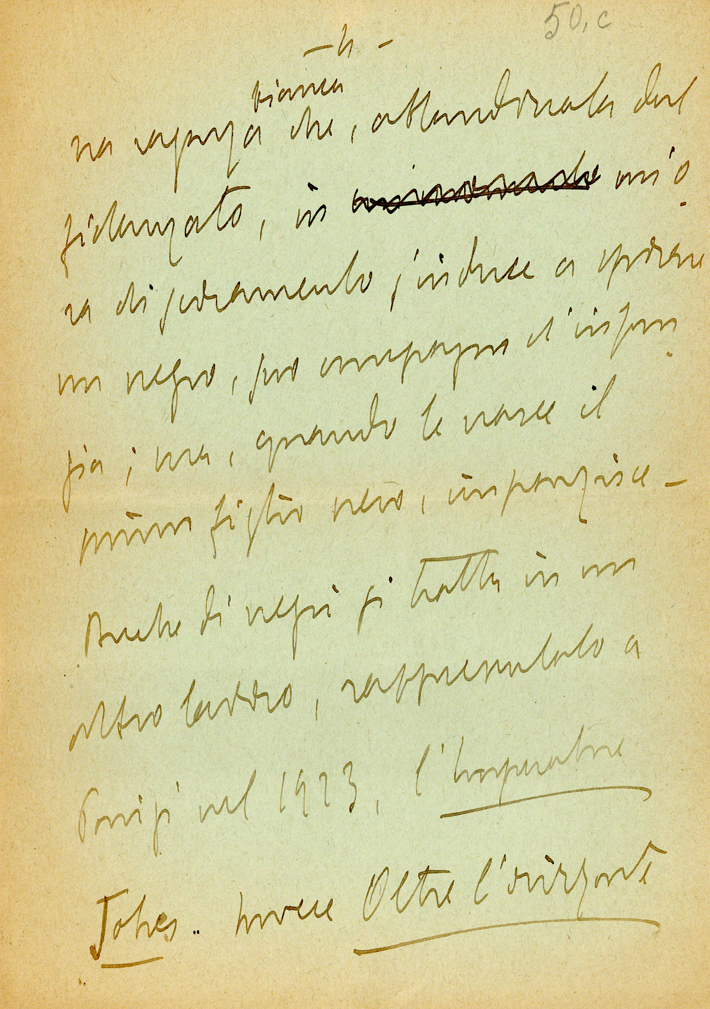 50, c
– 4 –
bianca
na ragazza che, abbandonata dal
fidanzato, in un'o
ra di sconforto s'induce a sposare
un negro, suo compagno d'infan
zia; ma, quando le nasce il
primo figlio nero, impazzisce –
Anche di negri si tratta in un
altro lavoro, rappresentato a
Parigi nel 1923, l'Imperatore
Jones.. Invece Oltre l'orizzonte